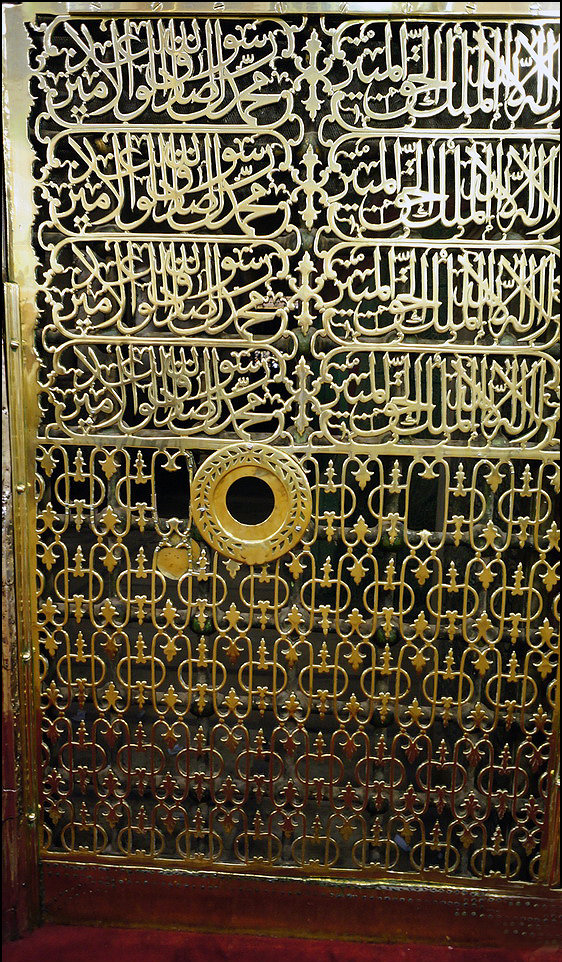 لا اله الا الله الملك الحق المبين محمد رسول الله الصادق الوعد الامين
لا اله الا الله الملك الحق المبين محمد رسول الله الصادق الوعد الامين
لا اله الا الله الملك الحق المبين محمد رسول الله الصادق الوعد الامين
لا اله الا الله الملك الحق المبين محمد رسول الله الصادق الوعد الامين